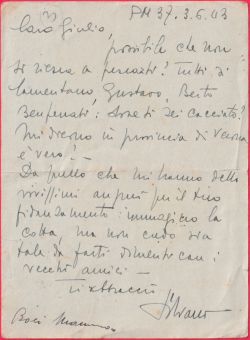 PM 37. 3.6.43
Caro Giulio,
possibile che non
si riesca a pescarti? Tutti si
lamentano, Gustavo, Berto
Benfenati: dove ti sei cacciato?
Mi dicono in provincia di Verona
è vero? -
Da quello che mi hanno detto
vivissimi auguri per il tuo
fidanzamento: immagino la
cotta, ma non credo sia
tale da farti dimenticare i
vecchi amici -
Ti abbraccio
Silvano
Baci